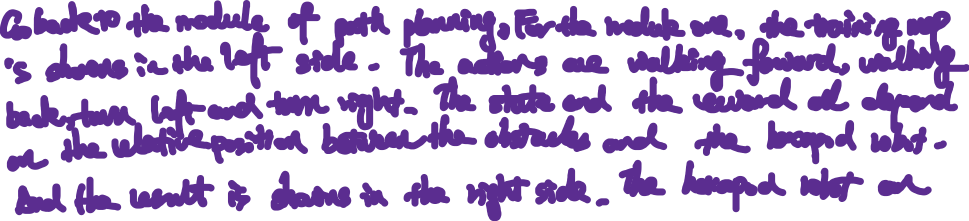 Go back to the module of path planning. For the module one, the training map
is shown in the left side. The actions are walking forward, walking
back, turn left and turn right. The state and the reward all depend
on the relative position between the obstacle and the hexapod robot.
And the result is shown in the right side. The hexapod robot can